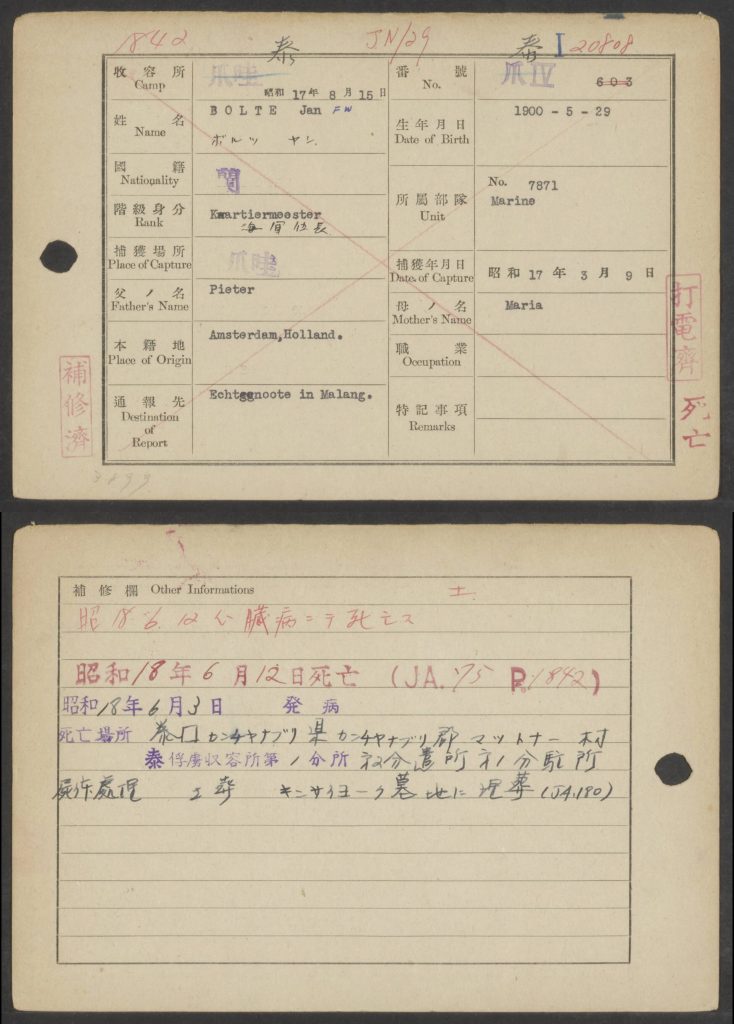 1842 泰 JN/29 泰 I 20808
收容所 Camp 爪哇 昭和 17年 8月 15日
番號 No. 爪IV 603
姓名 Name BOLTE Jan
ボルツ ヤン
生年月日 Date of Birth 1900 - 5 - 29
國籍 Nationality 蘭
階級身分 Rank Kwartiermeester
所屬部隊 Unit No. 7871
Marine
捕獲場所 Place of Capture 爪哇
捕獲年月日 Date of Capture 昭和 17 年 3 月 9 日
父ノ名 Father's Name Pieter
母ノ名 Mother's Name Maria
本籍地 Place of Origin Amsterdam,Holland.
職業 Occupation
通報先 Destination of Report Echtgenoote in Malang.
特記事項 Remarks
補修濟
打電濟
死亡
3899
補修欄 Other Informations
昭18.6.12 心臓病ニテ死亡ス
昭和18年6月12日死亡 (JA.75 P.1842)
昭和18年6月3日 発病
死亡場所 泰国カンチヤナブリ県カンチヤナブリ郡マットナー村
泰俘虜収容所第1分所 分遣所 分駐所
屍体處理 土葬 キンサイヨーク墓地に埋葬(JA.180)